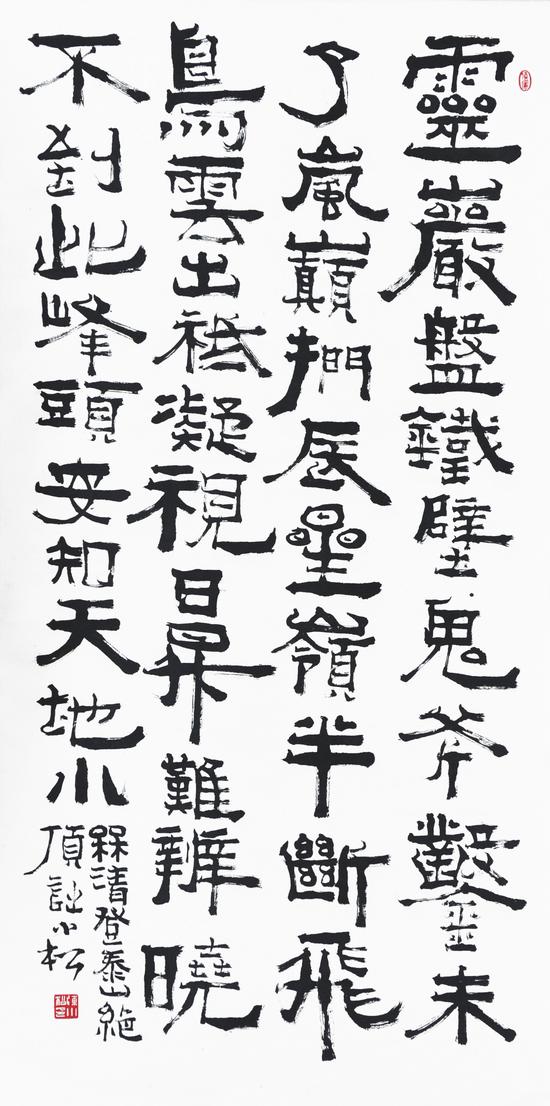 靈巖盤鐵壁鬼斧鑿未
了嵐巔捫辰星嶺半斷飛
鳥雲出祗凝視日昇難辨曉
不到此峰頭安知天地小
槑清登泰山絕
頂 小松